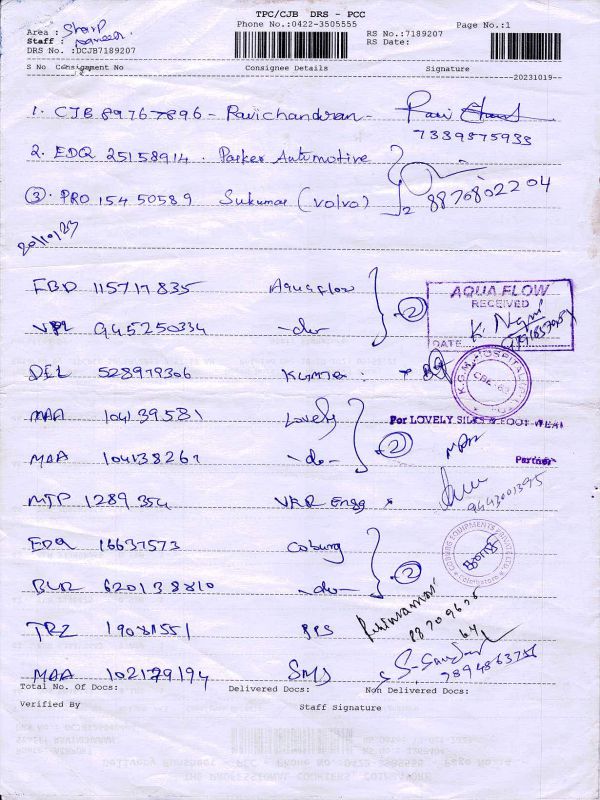 TPC/CJB DRS - PCC
Phone No.:0422-3505555
Page No.:1
Area : Sharp
Staff :
DRS No. :DCJB7189207
RS No.:7189207
RS Date:
S No Consignment No Consignee Details Signature
20231019--
1. CJB 89767896 - Ravichandran - Ravi
7339875933
2. EDQ 25158914 . Parker Automotive
3. PRO 15450589 Sukumar (Volvo) 2 8870802204
20/10/23
FBD 115717835 Aquaflow
VPL 945250334 - do - 2
AQUA FLOW
RECEIVED
K. Nagni
DATE
DEL 528979306
K.G.M. HOSPITAL
MAA 104139581 Lovely
For LOVELY SILKS & FOOT WEAR
MAA 104138267 - do - 2
Partner
MTP 1289354 VKR Engg
9443001395
EDQ 16637573 Coburg
COBURG EQUIPMENTS PRIVATE LTD
Coimbatore
BLR 620138810 - do - 2
TRZ 19081551 BPS
88709675
64
MAA 102179194 SMS
Total No. Of Docs: Delivered Docs: Non Delivered Docs:
Verified By Staff Signature